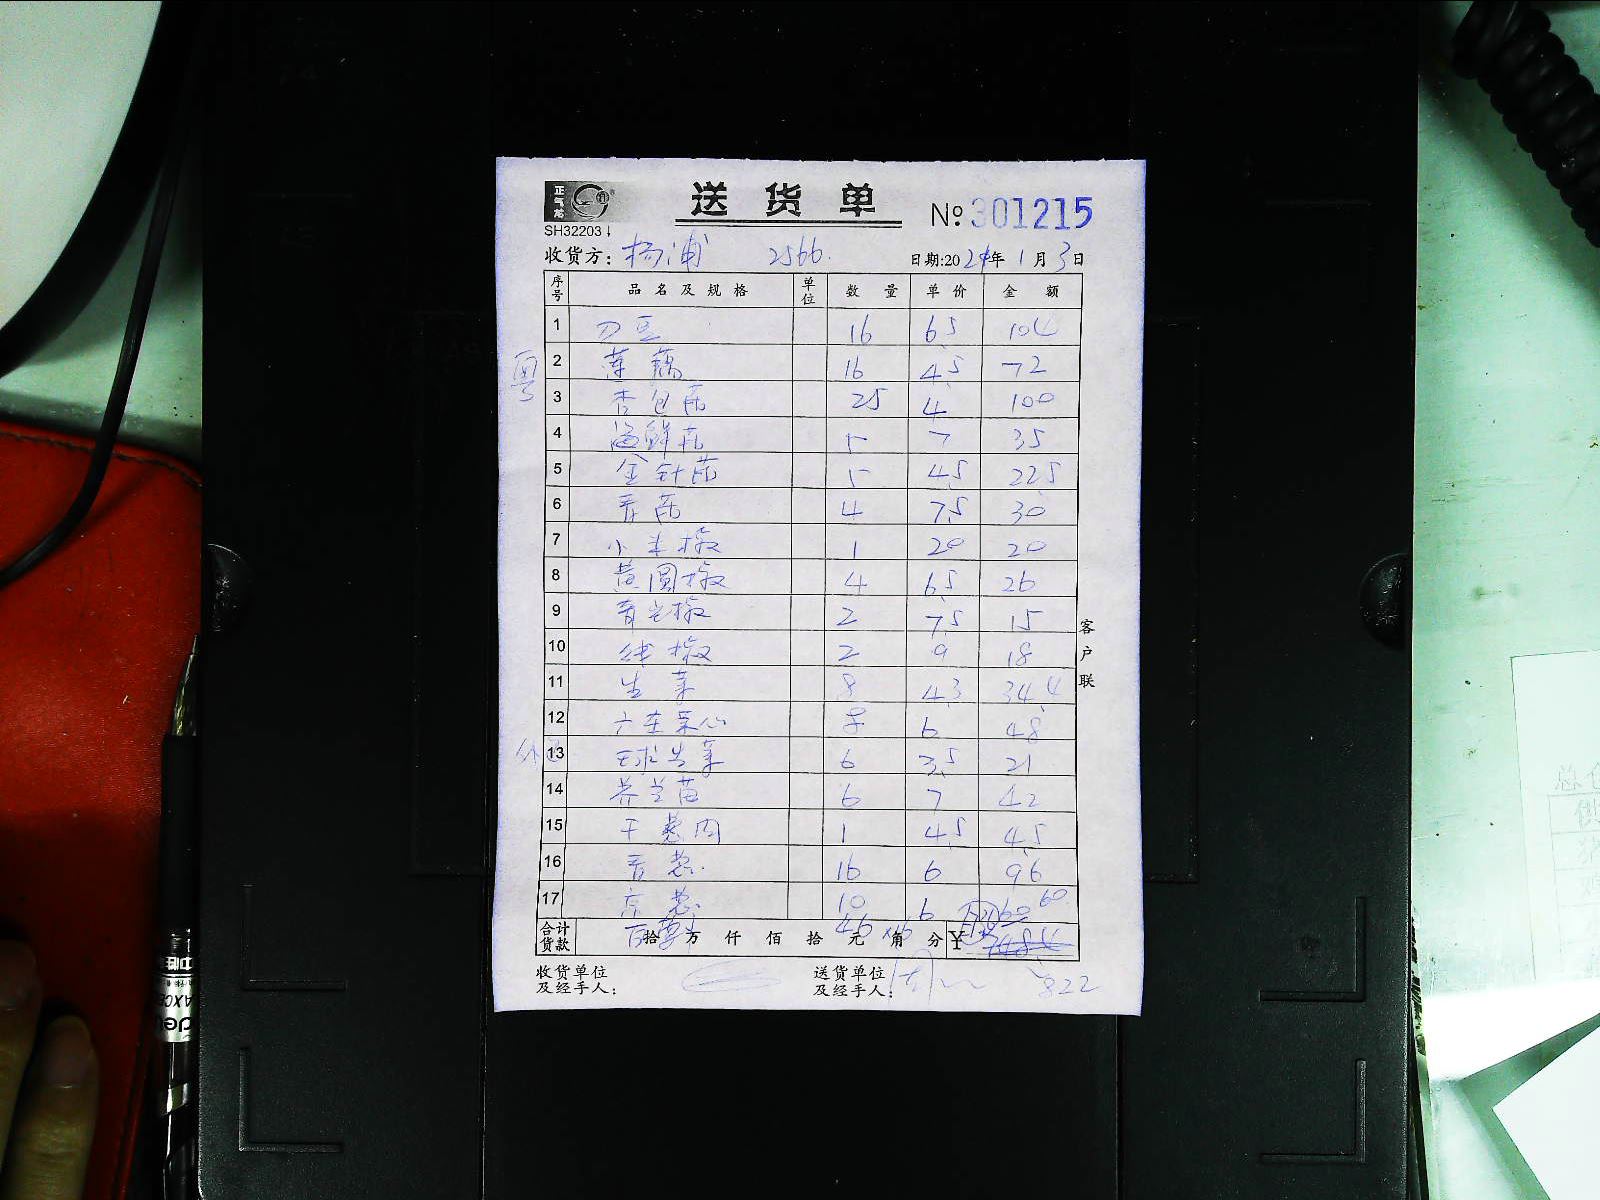 正气龙
送货单
№ 301215
SH32203↓
收货方: 杨浦 2566. 日期:2024年1月3日
序号 品名及规格 单位 数量 单价 金额
1 刀豆 16 6.5 104
粤
2 莲藕 16 4.5 72
3 杏包菇 25 4 100
4 海鲜菇 5 7 35
5 金针菇 5 4.5 22.5
6 香菇 4 7.5 30
7 小米椒 1 20 20
8 黄圆椒 4 6.5 26
9 青尖椒 2 7.5 15
客户联
10 线椒 2 9 18
11 生菜 8 4.3 34.4
12 广东菜心 8 6 48
13 球生菜 6 3.5 21
14 芥兰苗 6 7 42
15 干葱肉 1 4.5 4.5
16 香葱 16 6 96
17 京葱 10 6 60
合计货款 拾 万 仟 佰 拾 元 角 分 ¥ 748.4
收货单位及经手人: 送货单位及经手人: 822